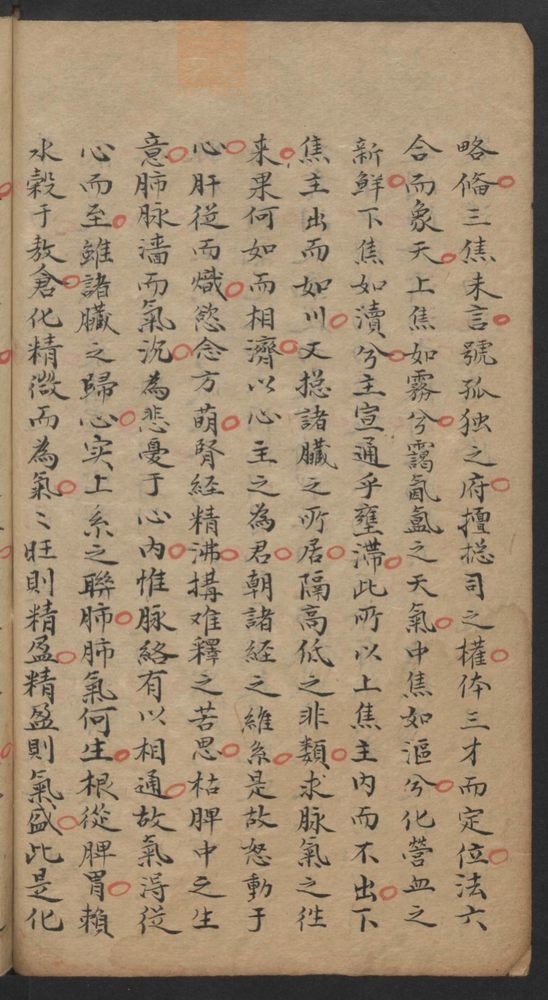 略俻三焦未言號孤独之府擅揔司之權体三才而定位法六
合而象天上焦如霧兮靄氤氳之天氣中焦如漚兮化營血之
新鮮下焦如瀆兮主宣通乎壅滯此所以上焦主内而不出下
焦主出而如川又揔諸臟之所居隔高低之非類求脉氣之往
来果何如而相濟以心主之為君朝諸經之維系是故怒動于
心肝從而熾慾念方萌腎經精沸搆难釋之苦思枯脾中之生
意肺脉濇而氣沉為悲憂于心内惟脉絡有以相通故氣淂從
心而至雖諸臟之歸心实上系之聮肺肺氣何生根從脾胃賴
水穀于敖倉化精微而為氣〻旺則精盈精盈則氣盛此是化